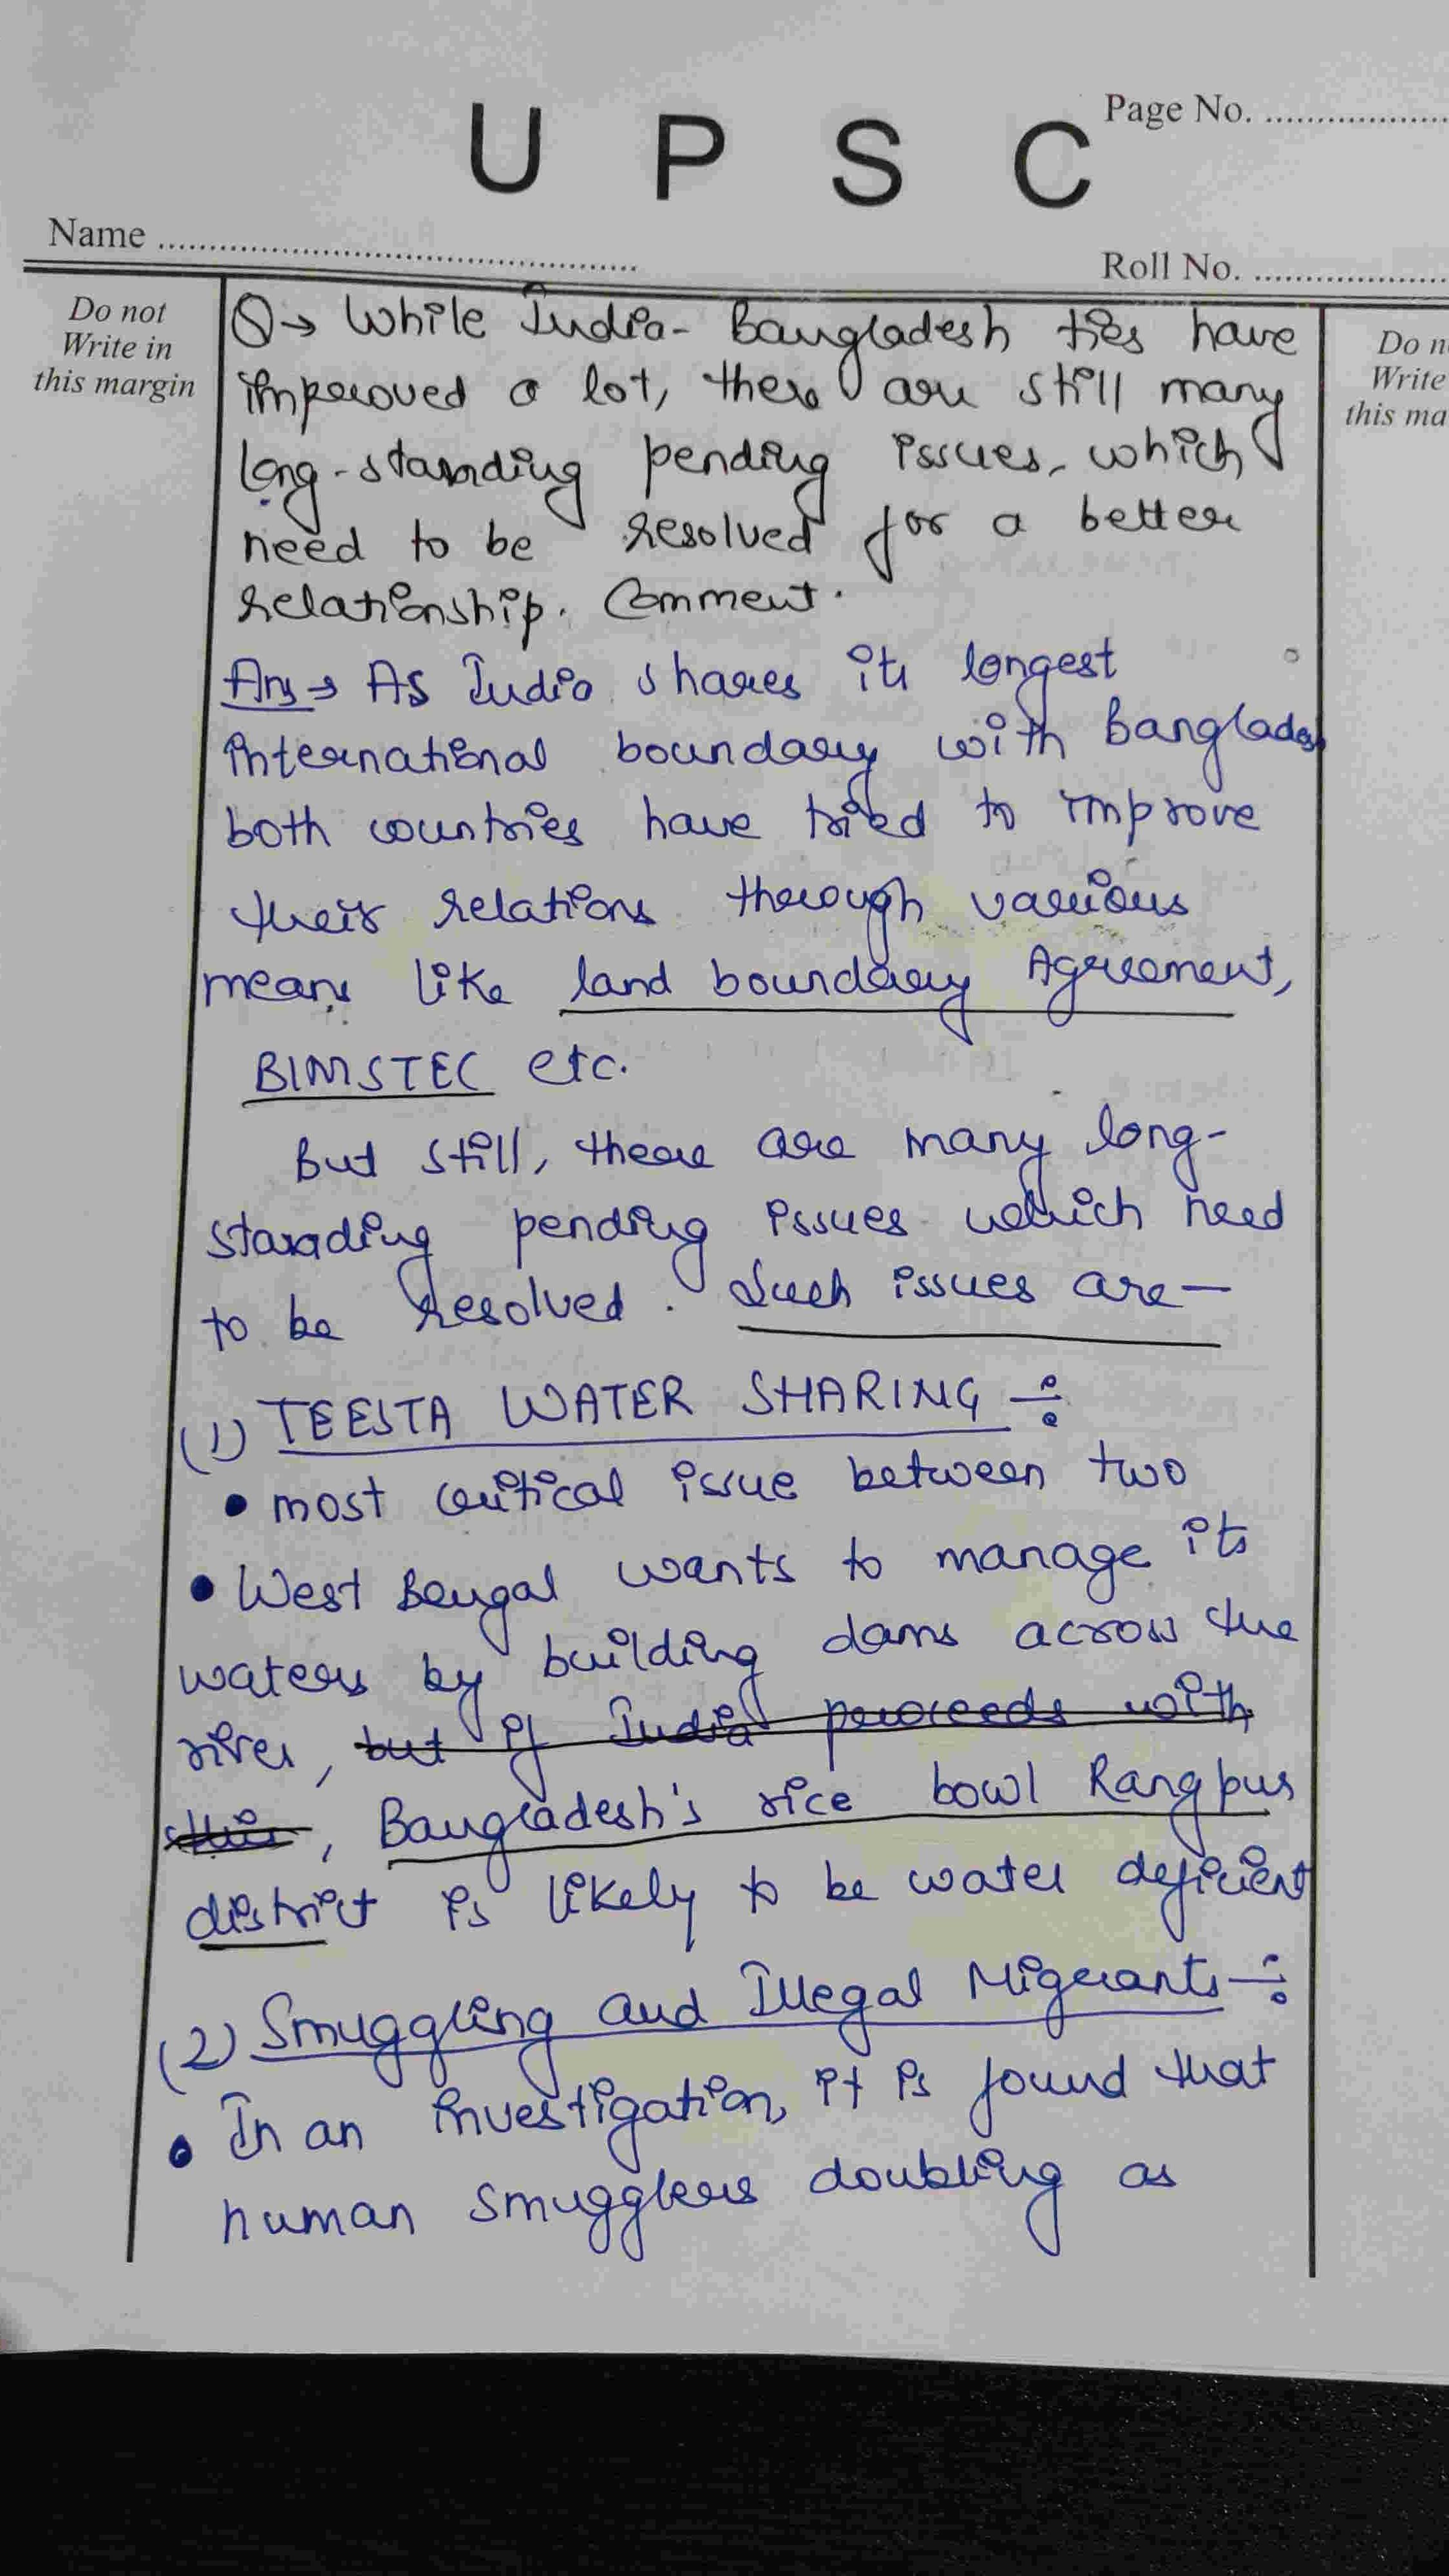 Page No. ..................
U P S C
Name ................................................
Roll No. ..................
Do not
Write in
this margin
Do n
Write
this ma
Q→ While India- Bangladesh ties have
improved a lot, there are still many
long-standing pending issues, which
need to be resolved for a better
relationship. Comment.
Ans→ As India shares its longest
international boundary with Banglades
both countries have tried to improve
their relations through various
means like land boundary Agreement,
BIMSTEC etc.
But still, there are many long-
standing pending issues which need
to be resolved. Such issues are—
(1) TEESTA WATER SHARING ÷
• most critical issue between two
• West Bengal wants to manage its
waters by building dams across the
river, but if India proceeds with
this, Bangladesh's rice bowl Rangpur
district is likely to be water deficient
(2) Smuggling and Illegal Migrants ÷
• In an investigation, it is found that
human smugglers doubling as